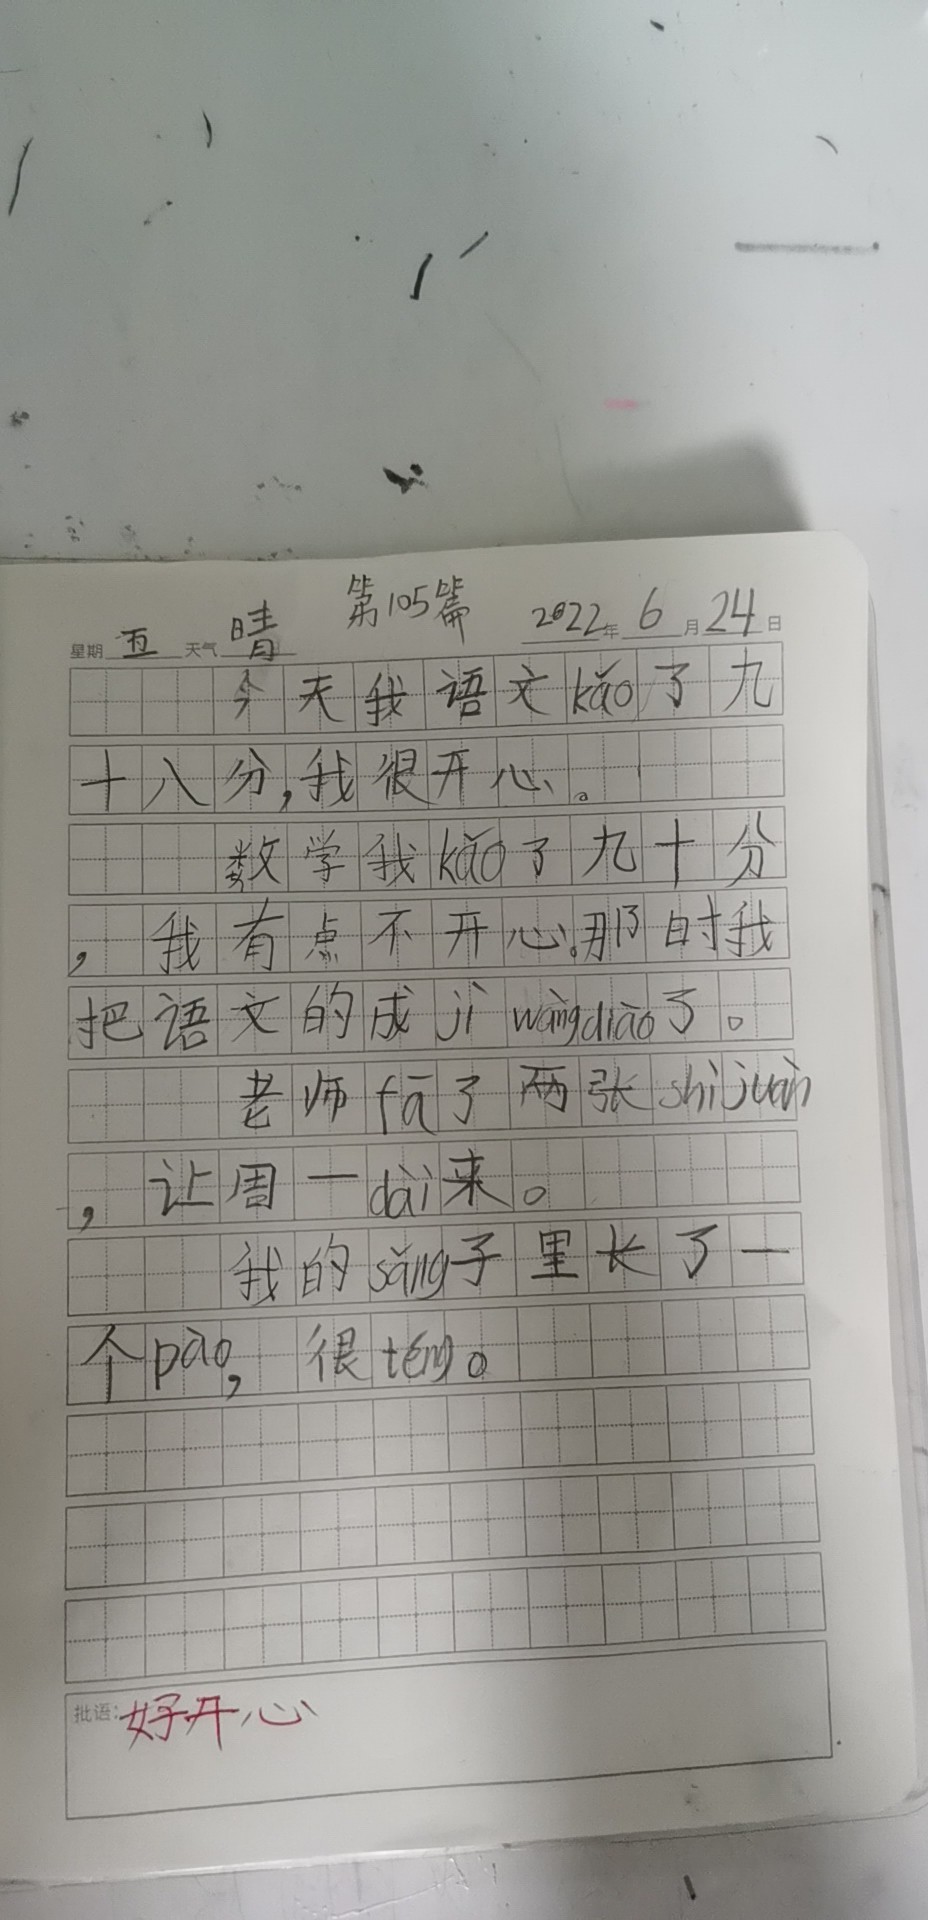 第105篇
星期 五 天气 晴 2022年 6 月 24 日
今天我语文kǎo了九
十八分,我很开心。
数学我kǎo了九十分
,我有点不开心。那时我
把语文的成jì wàngdiào了。
老师fā了两张shìjuàn
,让周一dài来。
我的sǎng子里长了一
个pào,很téng。
批语:好开心